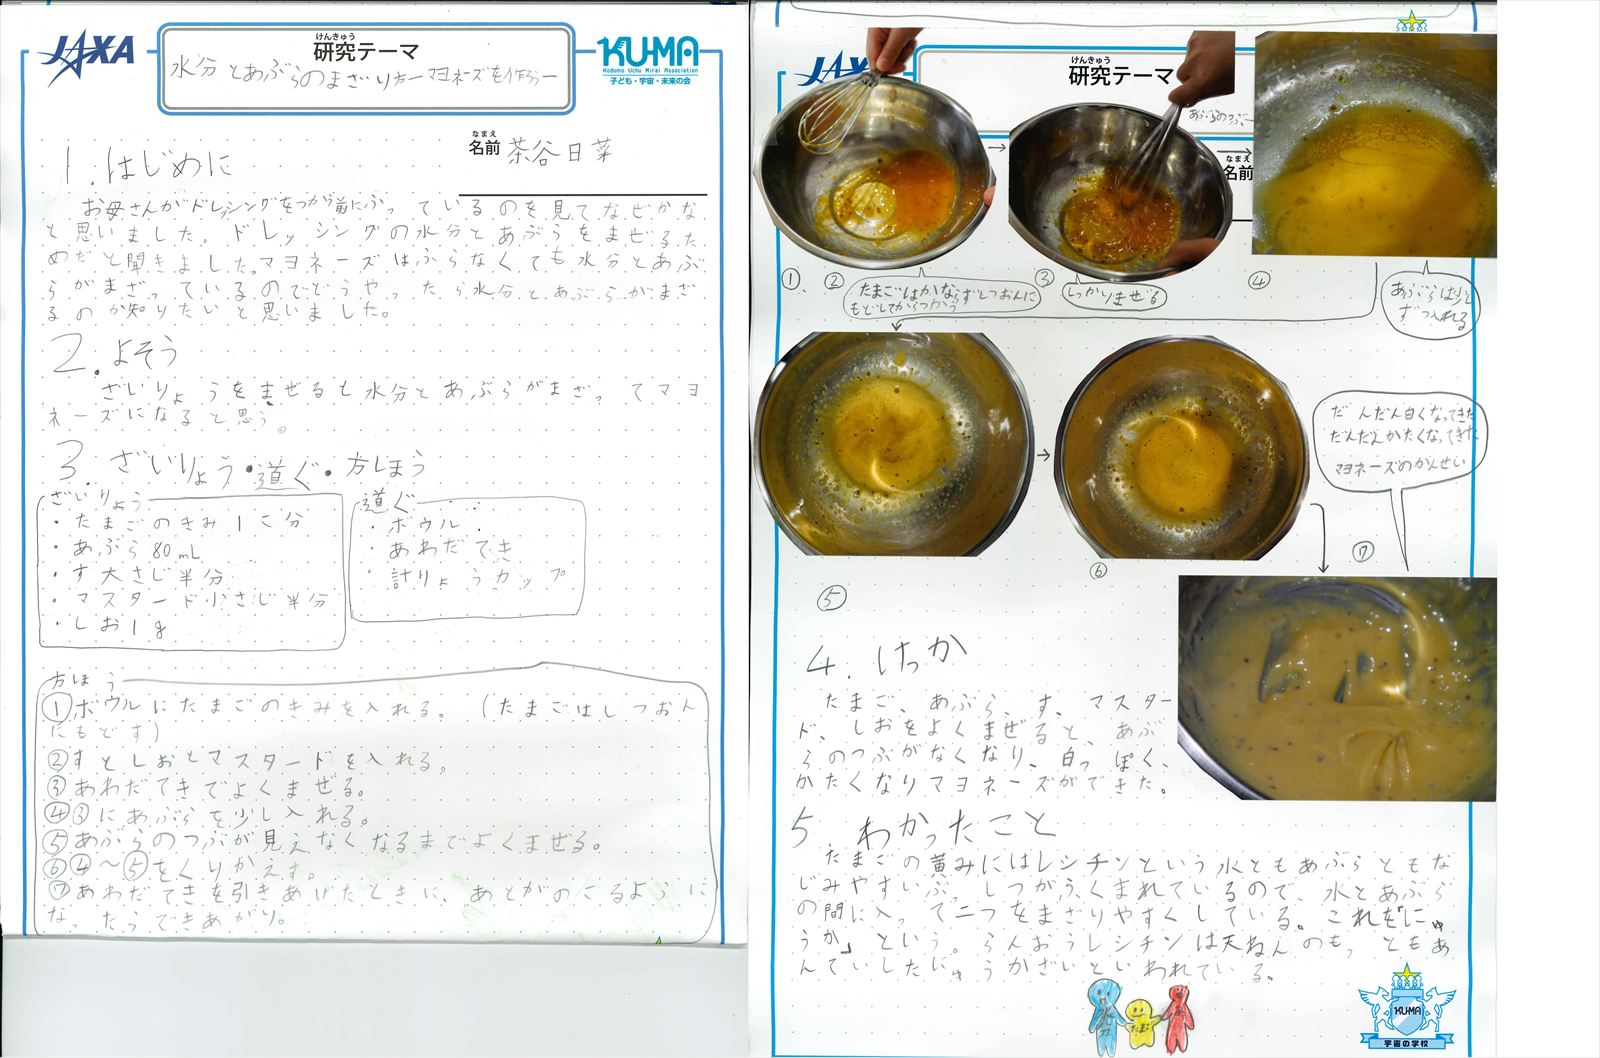 JAXA
けんきゅう
研究テーマ
水分とあぶらのまざり方ーマヨネーズを作ろうー
KU-MA
Kodomo Uchu Mirai Association
子ども・宇宙・未来の会
なまえ
名前 茶谷日菜
1.はじめに
お母さんがドレッシングをつかう前にふっているのを見てなぜかな
と思いました。ドレッシングの水分とあぶらをまぜるた
めだと聞きました。マヨネーズはふらなくても水分とあぶ
らがまざっているのでどうやったら水分とあぶらがまざ
るのか知りたいと思いました。
2.よそう
ざいりょうをまぜると水分とあぶらがまざってマヨ
ネーズになると思う。
3.ざいりょう・道ぐ・方ほう
ざいりょう
・たまごのきみ1こ分
・あぶら80mL
・す大さじ半分
・マスタード小さじ半分
・しお1g
道ぐ
・ボウル
・あわだてき
・計りょうカップ
方ほう
①ボウルにたまごのきみを入れる。(たまごはしつおん
にもどす)
②すとしおとマスタードを入れる。
③あわだてきでよくまぜる。
④③にあぶらを少し入れる。
⑤あぶらのつぶが見えなくなるまでよくまぜる。
⑥④〜⑤をくりかえす。
⑦あわだてきを引きあげたときに、あとがのこるように
なったらできあがり。
JAX
けんきゅう
研究テーマ
あぶらのつぶ
なまえ
名前
①、②
たまごはかならずしつおんに
もどしてからつかう
③
しっかりまぜる
④
あぶらは少し
ずつ入れる
⑤
⑥
だんだん白くなってきた
だんだんかたくなってきた
マヨネーズのかんせい
⑦
4.けっか
たまご、あぶら、す、マスター
ド、しおをよくまぜると、あぶ
らのつぶがなくなり、白っぽく、
かたくなりマヨネーズができた。
5.わかったこと
たまごの黄みにはレシチンという水ともあぶらともな
じみやすいぶっしつがふくまれているので、水とあぶら
の間に入って二つをまざりやすくしている。これを「にゅ
うか」という。らんおうレシチンは天ねんのもっともあ
んていしたにゅうかざいといわれている。
水分
たまご
KU-MA
宇宙の学校